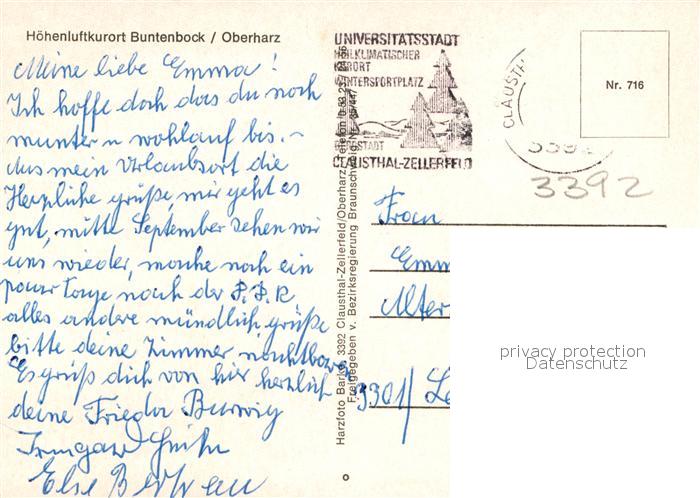 Höhenluftkurort Buntenbock / Oberharz
Meine liebe Emma!
Ich hoffe doch das du noch
munter u wohlauf bis. -
Aus mein Urlaubsort die
Herzliche grüße, mir geht es
gut, mitte September sehen wir
uns wieder, mache noch ein
paar Tage nach der D.D.R
alles andere mündlich, grüße
bitte deine Zimmer nachtbarin
Es grüß dich von hier herzlich
deine Frieda
Irmgard
Else
Harzfoto Barke, 3392 Clausthal-Zellerfeld/Oberharz, Telefon
Freigegeben v. Bezirksregierung Braunschweig Nr.
UNIVERSITÄTSSTADT
HEILKLIMATISCHER
KURORT
WINTERSPORTPLATZ
CLAUSTHAL-ZELLERFELD
CLAUSTH
3392
Nr. 716
3392
Frau
Emm
Alter
3301/ Le
privacy protection
Datenschutz